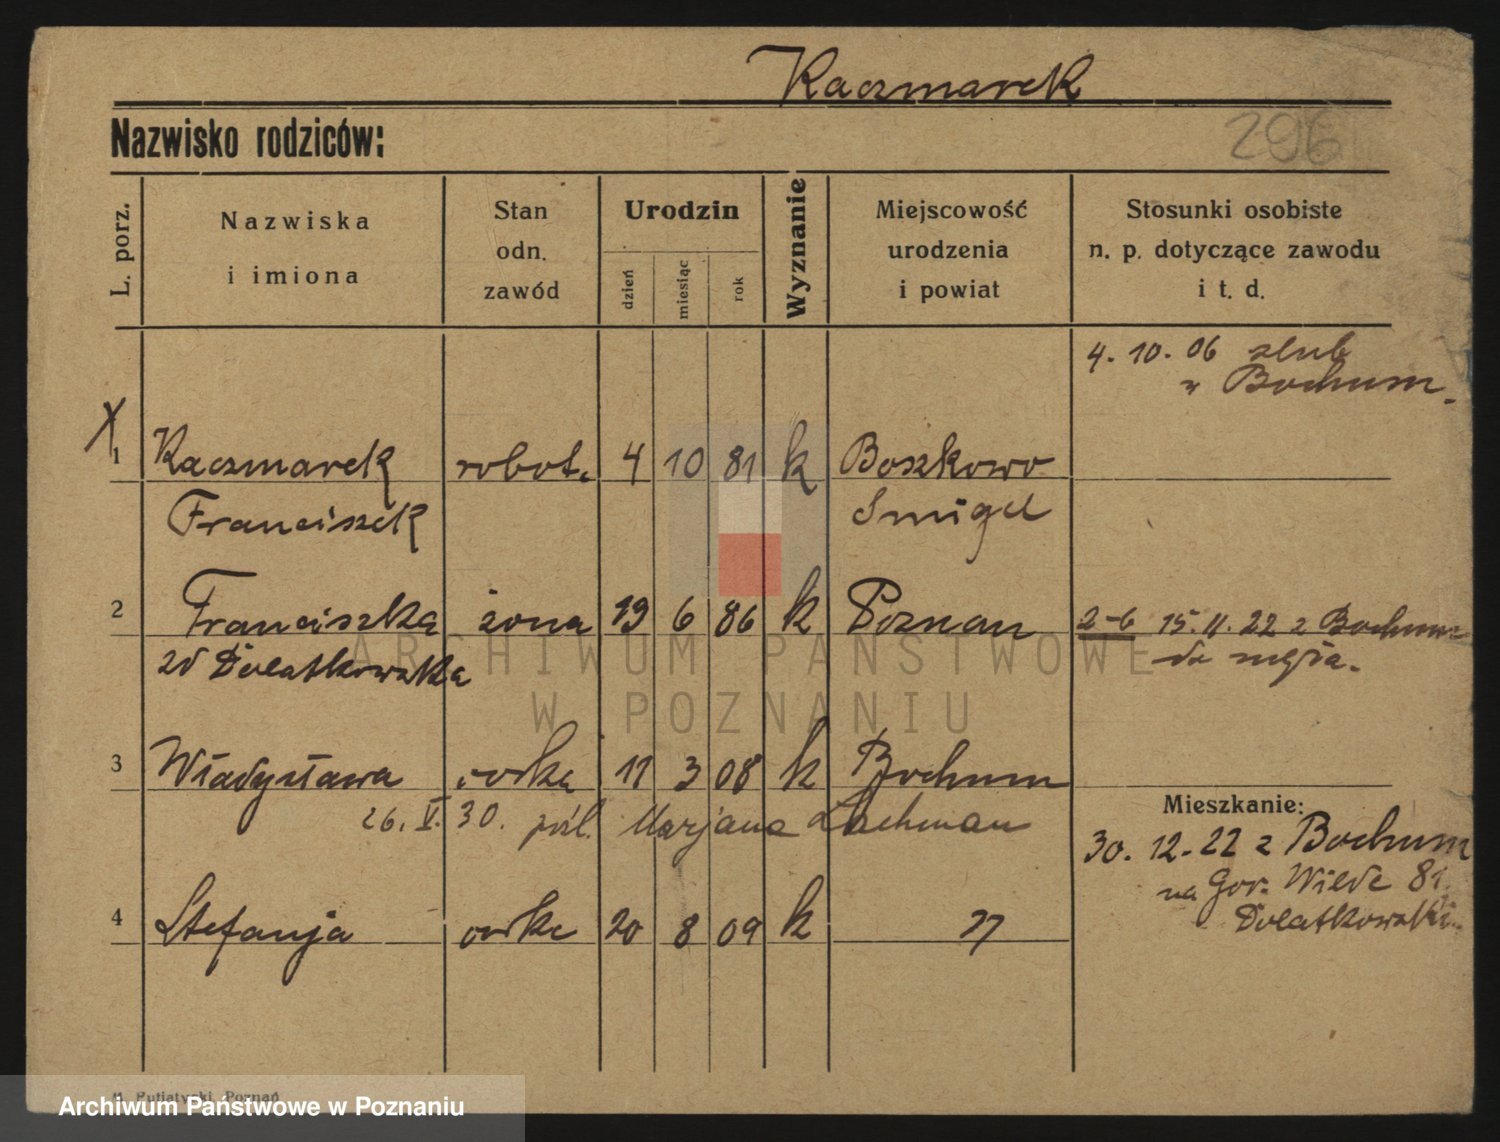 Kaczmarek
Nazwisko rodziców:
296
L. porz.
Nazwiska
i imiona
Stan
odn.
zawód
Urodzin
dzień
miesiąc
rok
Wyznanie
Miejscowość
urodzenia
i powiat
Stosunki osobiste
n. p. dotyczące zawodu
i t. d.
4. 10. 06 slub
w Bochum.
X
1 Kaczmarek robot. 4 10 81 k Boszkowo
Franciszek Smigel
2 Franciszka żona 19 6 86 k Poznan
2-6 15.11.22 z Bochum
do męża.
zd Dolatkowska
3 Władysława corka 11 3 08 k Bochum
26. V. 30. pośl. Marjana Lachman
Mieszkanie:
30. 12. 22 z Bochum
na Gor. Wilde 81.
Dolatkowski
4 Stefanja corka 20 8 09 k "
ARCHIWUM PAŃSTWOWE
W POZNANIU
Putiatycki Poznań
Archiwum Państwowe w Poznaniu